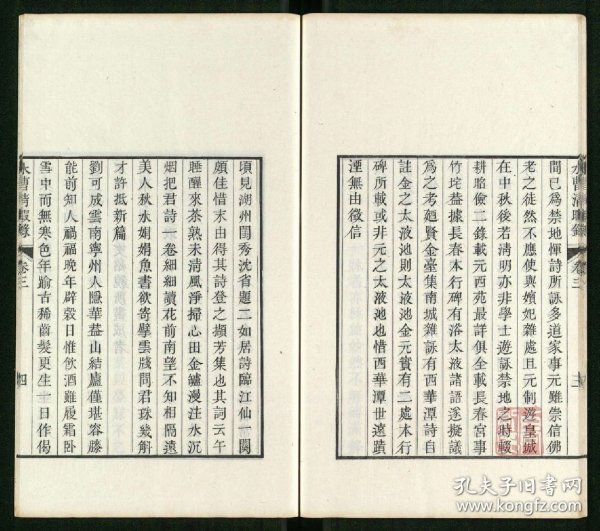 水曹清暇錄 卷三
間已為禁地惲詩所詠多道家事元雖崇信佛
老之徒然不應使與嬪妃雜處且元制遊皇城
在中秋後若淸明亦非學士遊詠禁地之時輟
耕昭儉二錄載元西苑最詳俱全載長春宮事
竹垞葢據長春本行碑有浴太液諸語遂擬議
為之考趙賢金臺集南城雜詠有西華潭詩自
註金之太液池則太液池金元實有二處本行
碑所載或非元之太液池也惜西華潭世遠蹟
湮無由徵信
頃見湖州閨秀沈省題二如居詩臨江仙一闋
頗佳惜未由得其詩登之擷芳集也其詞云午
睡醒來茶熟未淸風淨掃心田金罏漫注水沉
烟把君詩一卷細細讀花前南望不知相隔遠
美人秋水娟娟魚書欲寄擘雲牋問君珠幾斛
才許抵新篇
劉可成雲南寧州人隱華葢山結廬僅堪容膝
能前知人禍福晚年辟穀日惟飲酒雖履霜臥
雪中而無寒色年踰古稀齒髮更生一日作偈
水曹清暇錄 卷三 四
孔夫子旧书网